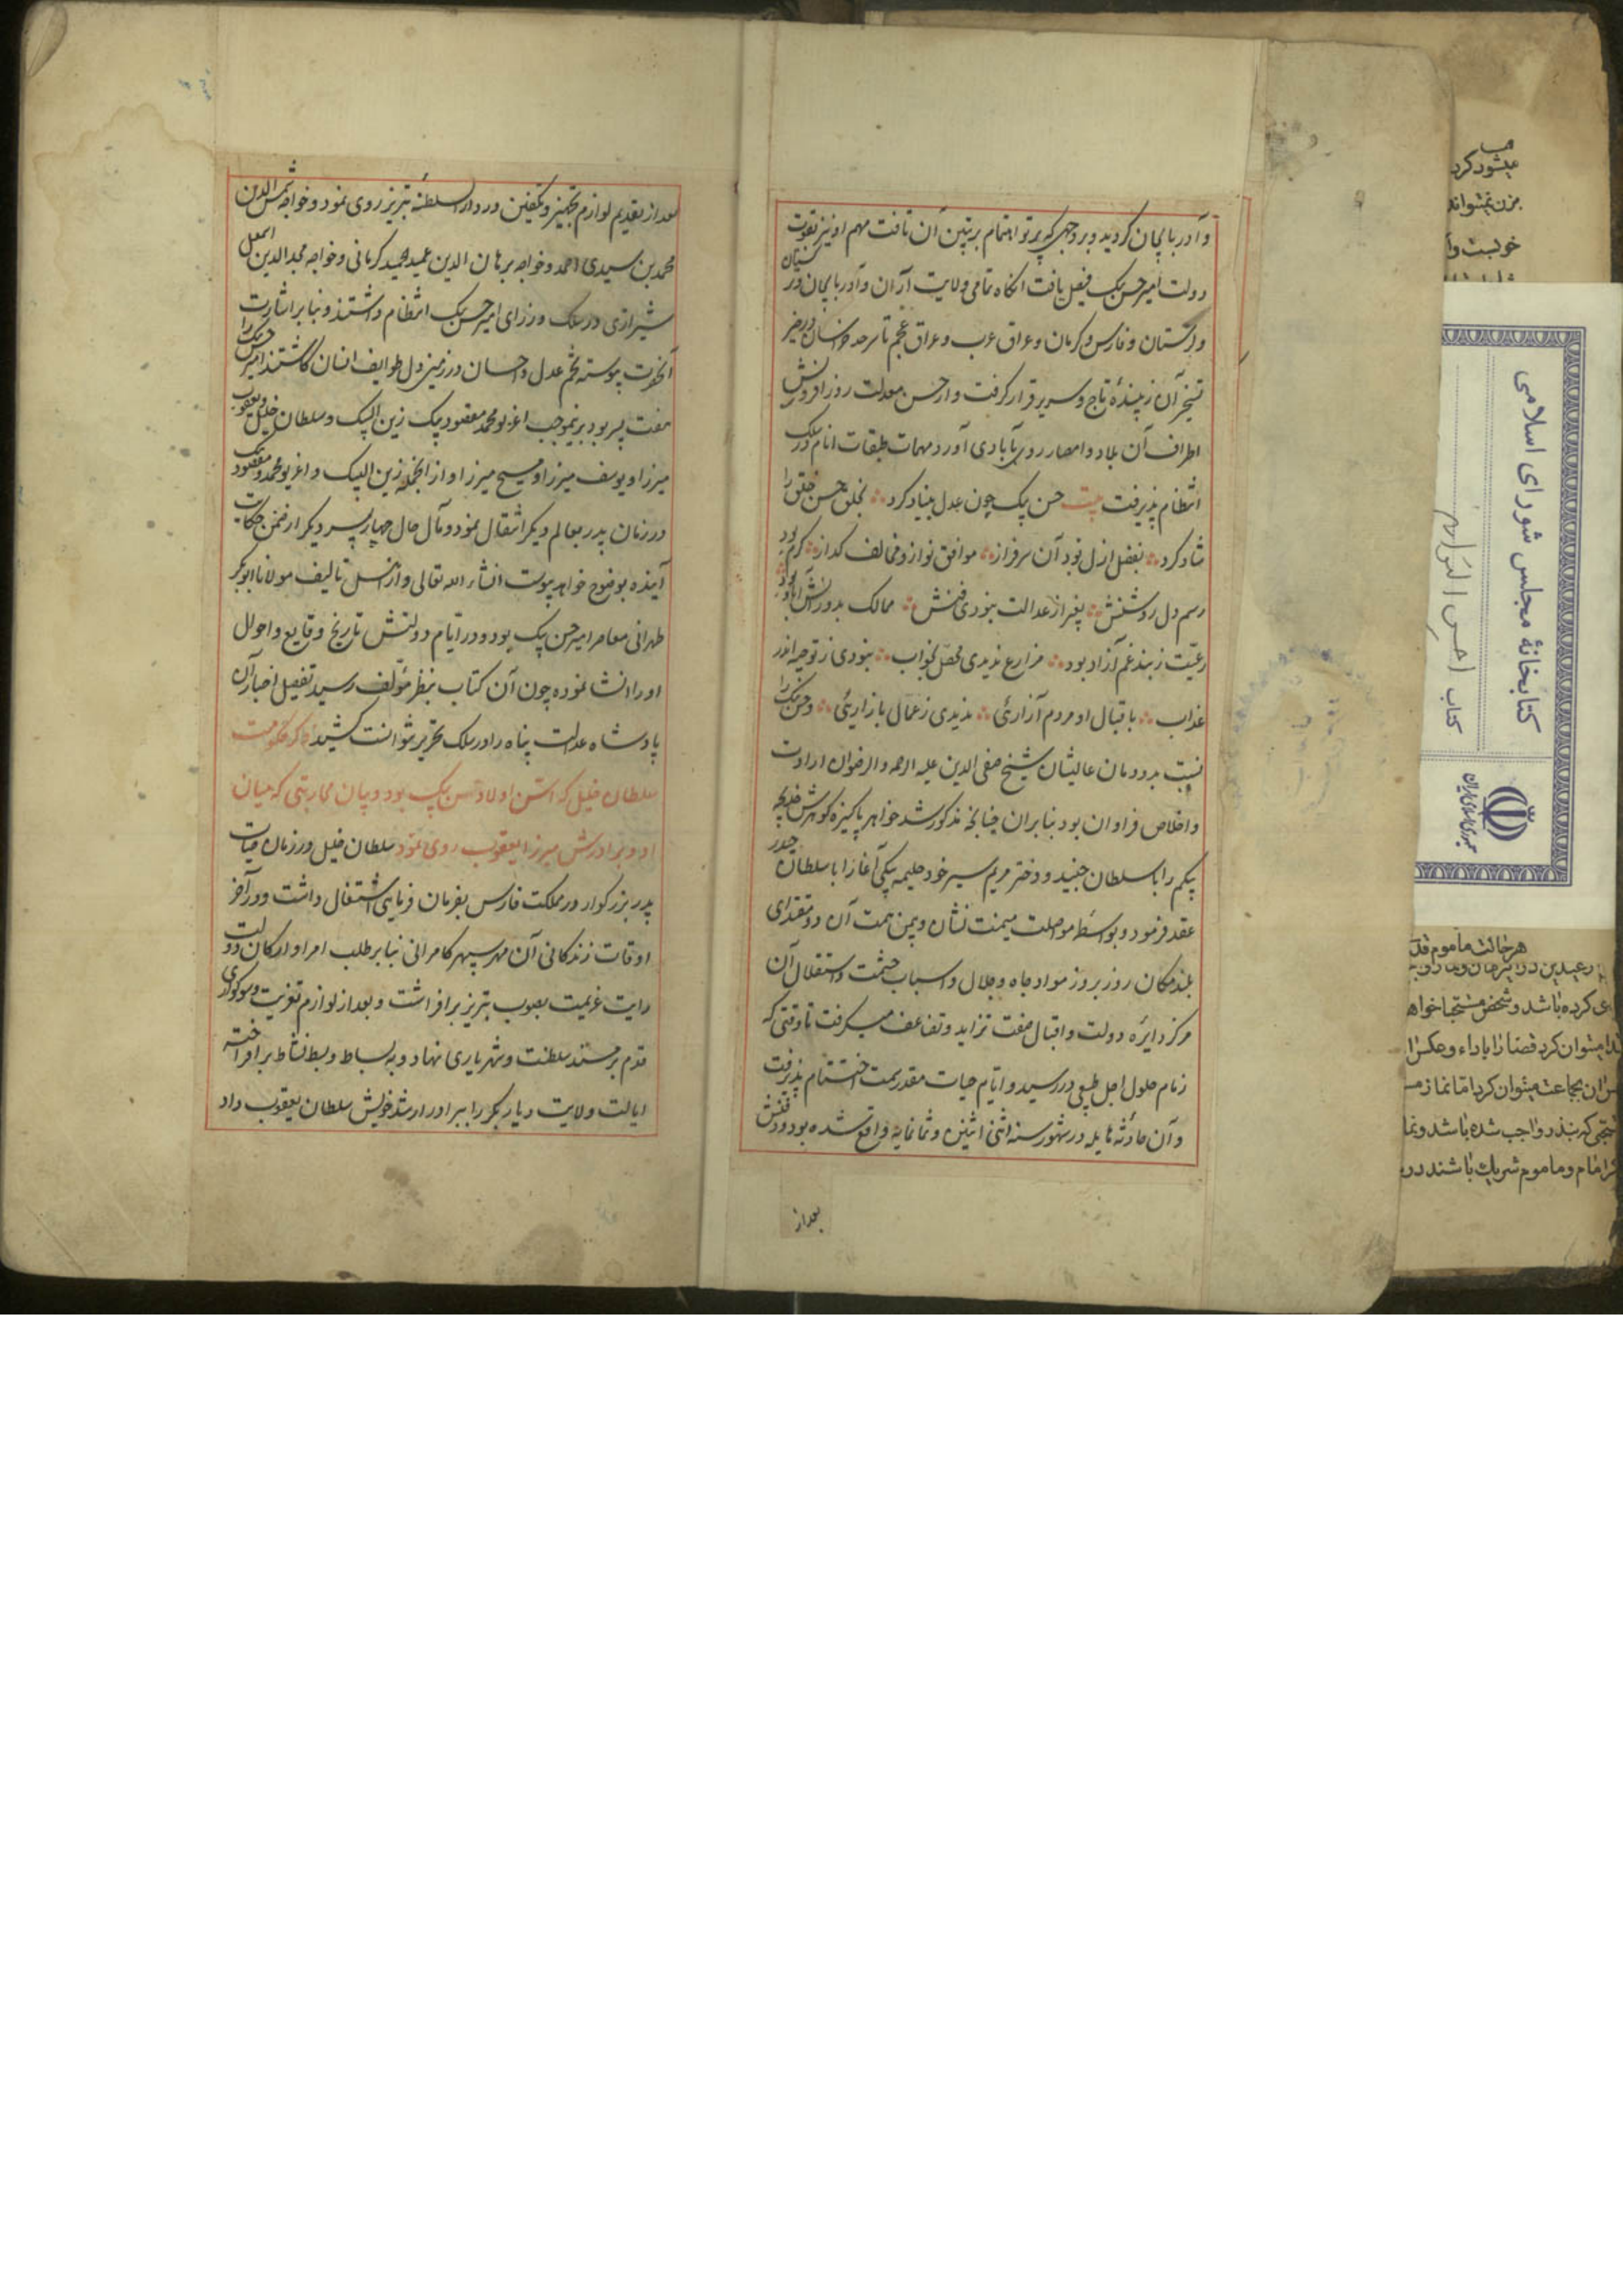 و آذربایجان کردید و بر وجهی که پرتو اهتمام بر تبیین آن تافت مهم او نیز بقوت
دولت امیر حسن بیک فیصل یافت انکاه تمامی ولایت آران و آذربایجان و کردستان
و لرستان و فارس و کرمان و عراق عرب و عراق عجم تا سرحد خراسان در حیز
تسخیر آن زیبندهٔ تاج و سریر قرار کرفت و از حسن معدلت روزافزونش
اطراف آن بلاد و امصار روی بآبادی آورد و مهمات طبقات انام در سلک
انتظام پذیرفت بیت حسن بیک چون عدل بنیاد کرد بخلق حسن خلق را
شاد کرد بفضل ازل بود آن سرفراز موافق نواز و مخالف کداز کرم بود
رسم دل روشنش بغیر از عدالت نبودی فنش ممالک بدورانش آباد بود
رعیت ز بند غم آزاد بود مزارع ندیدی محصل بخواب نبودی ز توجیه اندر
عذاب باقبال او مردم آزارئی ندیدی ز عمال بازارئی و حسن بیک را
نسبت بدودمان عالیشان شیخ صفی الدین علیه الرحمه و الرضوان ارادت
و اخلاص فراوان بود بنابران چنانچه مذکور شد خواهر پاکیزه کوهرش خدیجه
بیکم را با سلطان جنید و دختر مریم سیر خود حلیمه بیکی آغا را با سلطان حیدر
عقد فرمود و بواسطه مواصلت میمنت نشان و یمن همت آن دو مقتدای
بلند مکان روز بروز مواد جاه و جلال و اسباب حشمت و استقلال آن
مرکز دایره دولت و اقبال صفت تزاید و تضاعف میکرفت تا وقتی که
زمام حلول اجل طبیعی در رسید و ایام حیات مقدر سمت اختتام پذیرفت
و آن حادثه هایله در شهور سنه اثنی اثنین و ثمانمایه واقع شده بود و دفنش
بعد از
بعد از تقدیم لوازم تجهیز و تکفین در دار السلطنه تبریز روی نمود و خواجه شمس الدین
محمد بن سیدی احمد و خواجه برهان الدین عبد الحمید کرمانی و خواجه مجد الدین اسمعیل
شیرازی در سلک وزرای امیر حسن بیک انتظام داشتند و بنابر اشارت
آنحضرت پیوسته تخم عدل و احسان در زمین دل طوایف انسان کاشتند امیر حسن بیک را
هفت پسر بود برینموجب اغرلو محمد مقصود بیک زین البیک و سلطان خلیل و یعقوب
میرزا و یوسف میرزا و مسیح میرزا و از انجمله زین البیک و اغرلو محمد و مقصود بیک
در زمان پدر بعالم دیکر انتقال نمود و مآل حال چهار پسر دیکر از ضمن حکایات
آینده بوضوح خواهد پیوست انشاء الله تعالی و از تاریخ تالیف مولانا ابو بکر
طهرانی معاصر امیر حسن بیک بود و در ایام دولتش تاریخ وقایع و احوال
او را انشا نموده چون آن کتاب بنظر مؤلف نرسید تفصیل اخبار آن
پادشاه عدالت پناه را در سلک تحریر نتوانست کشید ذکر حکومت
سلطان خلیل که اسن اولاد حسن بیک بود و بیان محاربتی که میان
او و برادرش میرزا یعقوب روی نمود سلطان خلیل در زمان حیات
پدر بزرکوار در مملکت فارس بفرمان فرمایی اشتغال داشت و در آخر
اوقات زندکانی آن مهر سپهر کامرانی بنابر طلب امرا و ارکان دولت
رایت عزیمت بصوب تبریز برافراشت و بعد از لوازم تعزیت و سوکواری
قدم بر مسند سلطنت و شهریاری نهاد و به بساط و بسط نشاط برافراخته
ایالت ولایت دیار بکر را ببرادر ارشد خویش سلطان یعقوب داد
میشود کرد
بزن نمیتواند
کتابخانهٔ مجلس شورای اسلامی
کتاب احسن التواریخ
جمهوری اسلامی ایران
هر حالت ماموم قد
ی کرده باشد و شخص مستحبا خواهد
میتوان کرد قضا را باداء و عکس
ان بجماعت میتوان کرد اما نماز
که بنذر واجب شده باشد و نما
امام و ماموم شریک باشند در